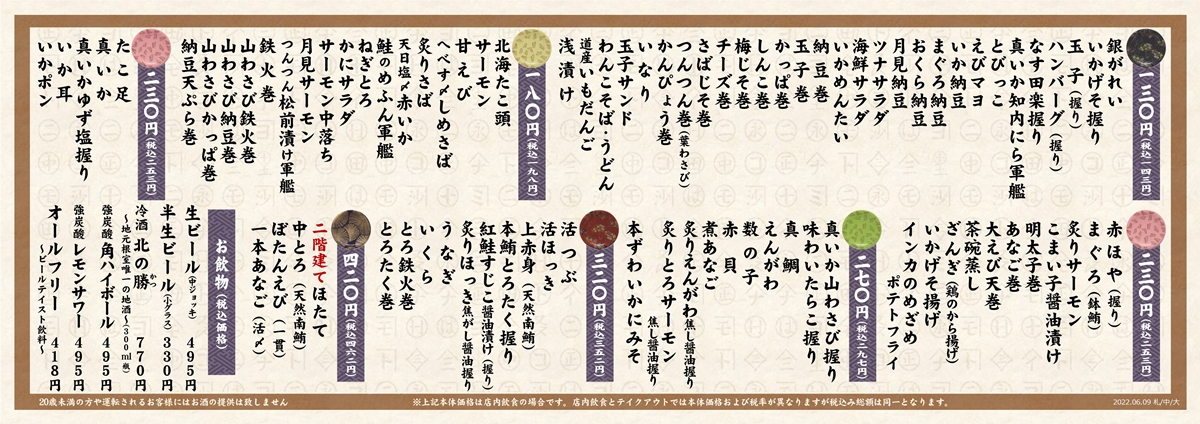 一三〇円(税込一四三円)
銀がれい
いかげそ握り
玉子(握り)
ハンバーグ(握り)
なす田楽握り
真いか知内にら軍艦
とびっこ
えびマヨ
いか納豆
まぐろ納豆
おくら納豆
月見納豆
ツナサラダ
海鮮サラダ
いかめんたい
納豆巻
玉子巻
かっぱ巻
しんこ巻
梅じそ巻
チーズ巻
さばじそ巻
つんつん巻(葉わさび)
かんぴょう巻
いなり
玉子サンド
わんこそば・うどん
道産いもだんご
浅漬け
一八〇円(税込一九八円)
北海たこ頭
サーモン
甘えび
へべす〆しめさば
炙りさば
天日塩〆赤いか
鮭のめふん軍艦
ねぎとろ
かにサラダ
サーモン中落ち
月見サーモン
つんつん松前漬け軍艦
鉄火巻
山わさび鉄火巻
山わさび納豆巻
山わさびかっぱ巻
納豆天ぷら巻
二三〇円(税込二五三円)
たこ足
真いか
真いかゆず塩握り
いか耳
いかポン
二三〇円(税込二五三円)
赤ほや(握り)
まぐろ(鉢鮪)
炙りサーモン
こまい子醤油漬け
明太子巻
あなご巻
大えび天巻
茶碗蒸し
ざんぎ(鶏のから揚げ)
いかげそ揚げ
インカのめざめ
ポテトフライ
二七〇円(税込二九七円)
真いか山わさび握り
味わいたらこ握り
真鯛
えんがわ
数の子
赤貝
煮あなご
炙りえんがわ焦し醤油握り
炙りとろサーモン
焦し醤油握り
本ずわいかにみそ
三二〇円(税込三五二円)
活つぶ
活ほっき
上赤身(天然南鮪)
本鮪とろたく握り
紅鮭すじこ醤油漬け(握り)
炙りほっき焦がし醤油握り
うなぎ
いくら
とろ鉄火巻
とろたく巻
四二〇円(税込四六二円)
二階建てほたて
中とろ(天然南鮪)
ぼたんえび(一貫)
一本あなご(活〆)
お飲物(税込価格)
生ビール(中ジョッキ) 495円
半生ビール(小グラス) 330円
冷酒 北の勝 770円
かつ
〜地元根室唯一の地酒〜300ml瓶)
強炭酸 角ハイボール 495円
強炭酸 レモンサワー 495円
オールフリー 418円
〜ビールテイスト飲料〜
20歳未満の方や運転されるお客様にはお酒の提供は致しません
※上記本体価格は店内飲食の場合です。店内飲食とテイクアウトでは本体価格および税率が異なりますが税込み総額は同一となります。
2022.06.09 札/中/大